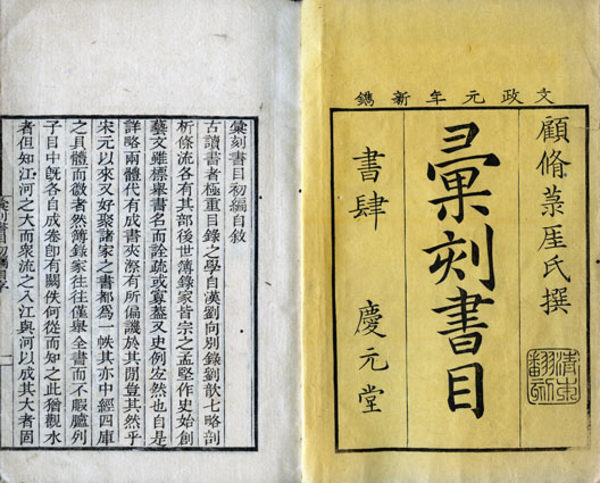 文政元年新鐫
顧脩菉厓氏撰
彙刻書目
書肆 慶元堂
彙刻書目初編自敘
古讀書者極重目錄之學自漢劉向別錄劉歆七略剖
析條流各有其部後世簿錄家皆宗之孟堅作史始創
藝文雖標舉書名而詮疏或寡葢又史例宐然也自是
詳略兩體代有成書夾漈有所偏譏於其閒豈其然乎
宋元以來又好聚諸家之書都為一帙其亦中經四庫
之具體而微者然簿錄家往往僅舉全書而不暇臚列
子目中旣各自成卷卽有闕佚何從而知之此猶觀水
者但知江河之大而衆流之入江與河以成其大者固